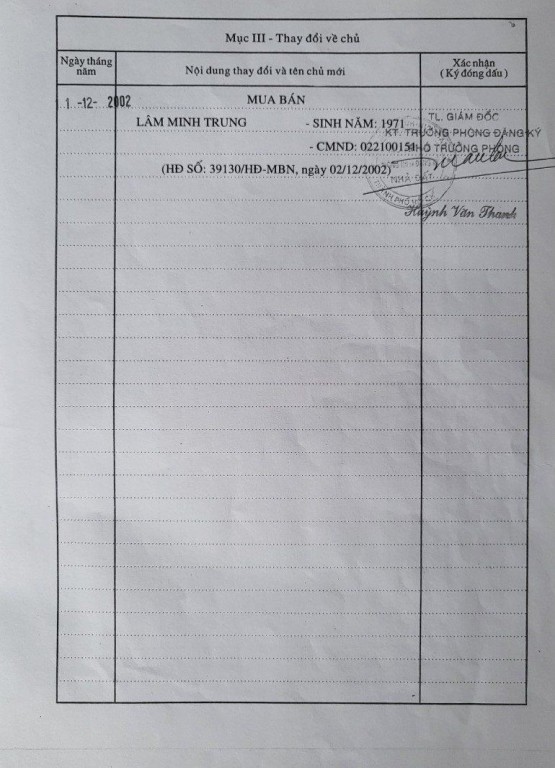 Mục III - Thay đổi về chủ
Ngày tháng năm
Nội dung thay đổi và tên chủ mới
Xác nhận
( Ký đóng dấu )
1 -12- 2002
MUA BÁN
LÂM MINH TRUNG - SINH NĂM: 1971
- CMND: 022100151
(HĐ SỐ: 39130/HĐ-MBN, ngày 02/12/2002)
TL. GIÁM ĐỐC
KT. TRƯỞNG PHÒNG ĐĂNG KÝ
PHÓ TRƯỞNG PHÒNG
NHÀ ĐẤT
Huỳnh Văn Thanh